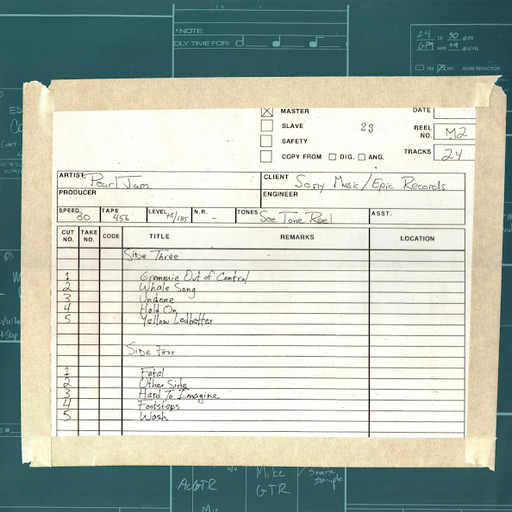 *NOTE:
DLY TIME FOR:
24 30
MASTER
DATE
SLAVE 23
REEL NO. M2
SAFETY
COPY FROM DIG. ANG.
TRACKS 24
ARTIST Pearl Jam
CLIENT Sony Music/Epic Records
PRODUCER
ENGINEER
SPEED 30 TAPE 456 LEVEL +5/185 N.R. - TONES See Tone Reel ASST.
CUT NO. TAKE NO. CODE TITLE REMARKS LOCATION
Side Three
1 Gremmie Out of Control
2 Whale Song
3 Undone
4 Hold On
5 Yellow Ledbetter
Side Four
1 Fatal
2 Other Side
3 Hard To Imagine
4 Footsteps
5 Wash
AcGTR
Mike GTR
Snare Sample